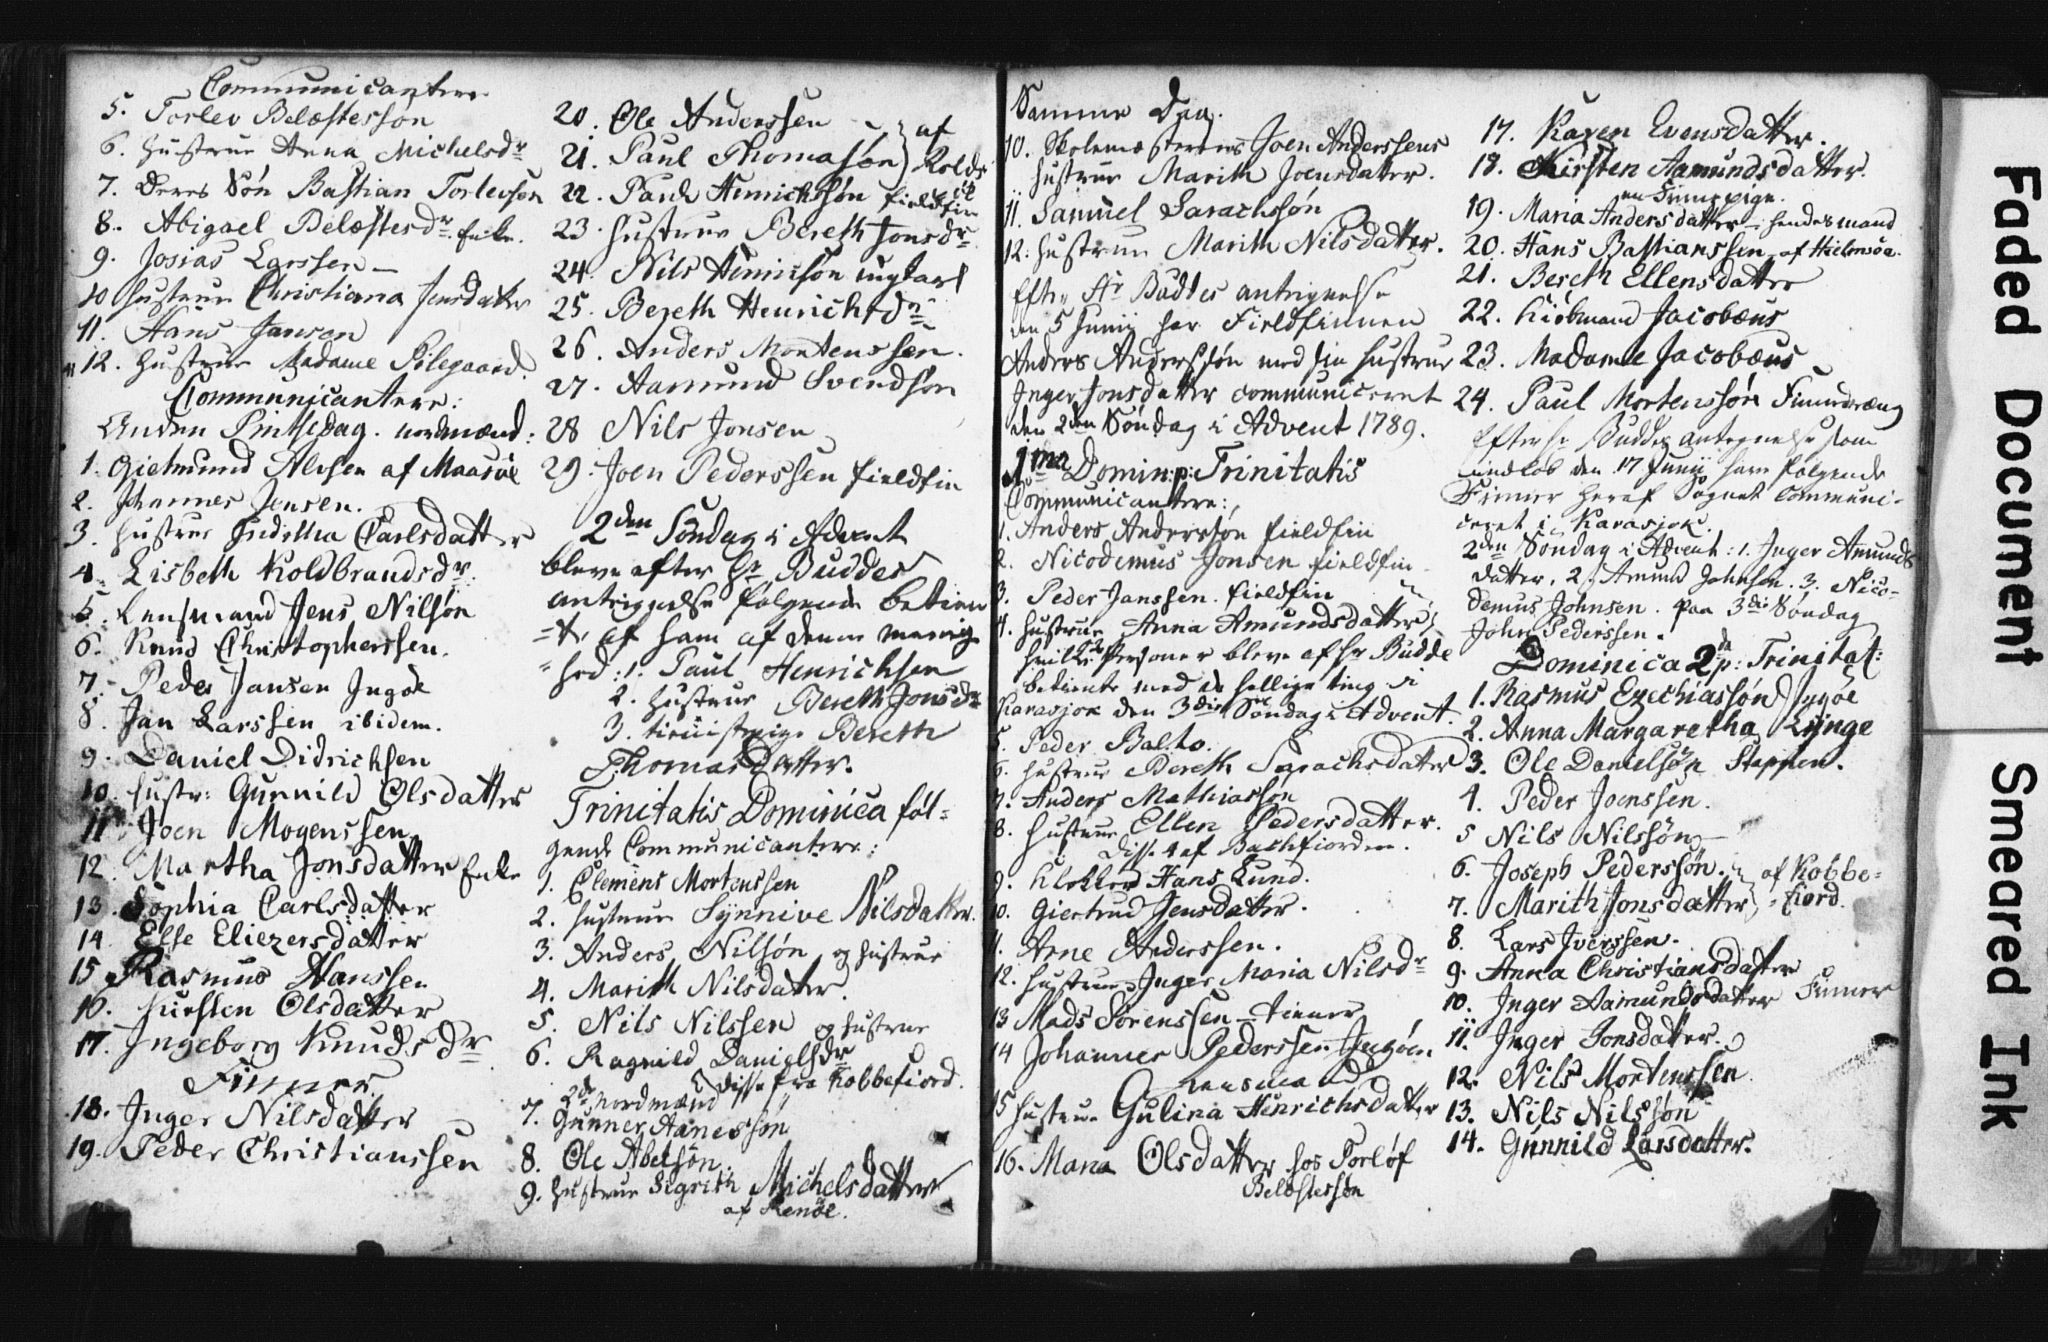 Communicantere
5. Torlev Belæstessøn
6. Hustrue Anna Michelsdr
7. Deres Søn Bastian Torlevsøn
8. Abigael Belæstesdr. Enke.
9. Josias Larssen
10 Hustrue Christiana Jensdatter
11. Hans Jansen
12. Hustrue Madame Pilegaard.
Communicantere:
Anden Pintzedag. nordmænd:
1. Gietmund Alvsen af Maasøe
2. Johannes Jensen.
3. Hustrue Fridricha Carlsdatter
4. Lisbeth Koldbrandsdr.
5. Lensmand Jens Nilsøn
6. Knud Christophersen.
7. Peder Jansen Ingøe
8. Jan Larssen ibidem.
9. Daniel Didrichsen
10. Hustr: Gunnild Olsdatter
11 Joen Mogenssen
12. Martha Jonsdatter Enke
13. Sophia Carlsdatter
14. Else Eliezersdatter
15 Rasmus Hanssen
16. Kirsten Olsdatter
17. Ingeborg Knudsdr
Finner
18. Inger Nilsdatter
19. Peder Christianssen
20. Ole Anderssen
21. Paul Thomasøn } af Kolde
22. Paul Henrichsøn fieldfin
23. Hustrue Bereth Jonsdr
24. Nils Heninsøn
25. Bereth Henrichsdr
26. Anders Mortenssen.
27. Aamund Svendsøn
28 Nils Jonsen
29. Joen Pederssen fieldfin
2den Søndag i Advent
bleve efter Hr Buddes
antegnelse følgende betien
=te af ham af denne menig
=hed: 1. Paul Henrichsen
2. Hustrue Bereth Jonsdr
3. Bereth
Thomasdatter.
Trinitatis Dominica føl=
gende Communicantere:
1. Clemens Mortenssen
2. Hustrue Synnive Nilsdatter.
3. Anders Nilsøn og Hustrue
4. Marith Nilsdatter.
5. Nils Nilssen og Hustrue
6. Ragnild Danielsdr
disse fra Kobbefiord.
nordmænd
7. Gunner Aanessøn
8. Ole Abelsøn.
9. Hustrue Sigrith Michelsdatter
af Renøe.
Samme Dag.
10. Skolemesterens Joen Anderssens
Hustrue Marith Joensdatter.
11. Samuel Sarachssøn
12. Hustrue Marith Nilsdatter.
Efter Hr Buddes antegnelse
den 5 Junij har Fieldfinnen
Anders Anderssøn med sin Hustrue
Inger Jonsdatter communiceret
den 2den Søndag i Advent 1789.
1ma Domin: p: Trinitatis
Communicantere:
1. Anders Andersøn fieldfin
2. Nicodemus Jonsen fieldfin
3. Peder Janssen. fieldfin
4. Hustrue Anna Amundsdatter
hvilke Personer bleve af Hr Budde
betiente med de hellige ting i
Karasjok den 3die Søndag i Advent.
5. Peder Balto.
6. Hustrue Bereth Sarachsdatter
7. Anders Mathiassøn
8. Hustrue Ellen Pedersdatter.
Disse 4 af Bachfiorden.
9. Klokker Hans Lund.
10. Giertrud Jensdatter.
11. Arne Anderssen.
12. Hustrue Inger Maria Nilsdr
13 Mads Sørenssen
14 Johannes Pederssen Ingøen
15 Hustrue Gulina Henrichsdatter
16. Maria Olsdatter hos Torløf
Belæstessøn
17. Karen Evensdatter.
18. Kirsten Aamundsdatter.
en Finnepige.
19. Maria Andersdatter - hendes mand
20. Hans Bastianssen af Hielmsøe.
21. Bereth Ellensdatter
22. Kiøbmand Jacobæus
23. Madame Jacobæus
24. Paul Mortenssøn Finnedreng
Efter Hr Buddes antegnelse som
indløb den 17 Junij have følgende
Finner heraf Sognet Communi-
ceret i Karasjok.
2den Søndag i Advent: 1. Inger Amunds
datter, 2. Amund Johnsøn. 3. Nico-
demus Johnsen. paa 3die Søndag
John Pederssen.
Dominica 2da p: Trinitat:
1. Rasmus Ezechiassøn Ingøe
2. Anna Margaretha Lynge
3. Ole Danielsøn Stappen.
4. Peder Joenssen.
5 Nils Nilssøn
6. Joseph Pederssøn. } af Kobbe=
7. Marith Jonsdatter } =fiord.
8. Lars Iverssen.
9. Anna Christiansdatter
10. Inger Aamundsdatter Finner
11. Inger Jonsdatter.
12. Nils Mortenssen
13. Nils Nilssøn
14. Gunnild Larsdatter.
Faded Document
Smeared Ink